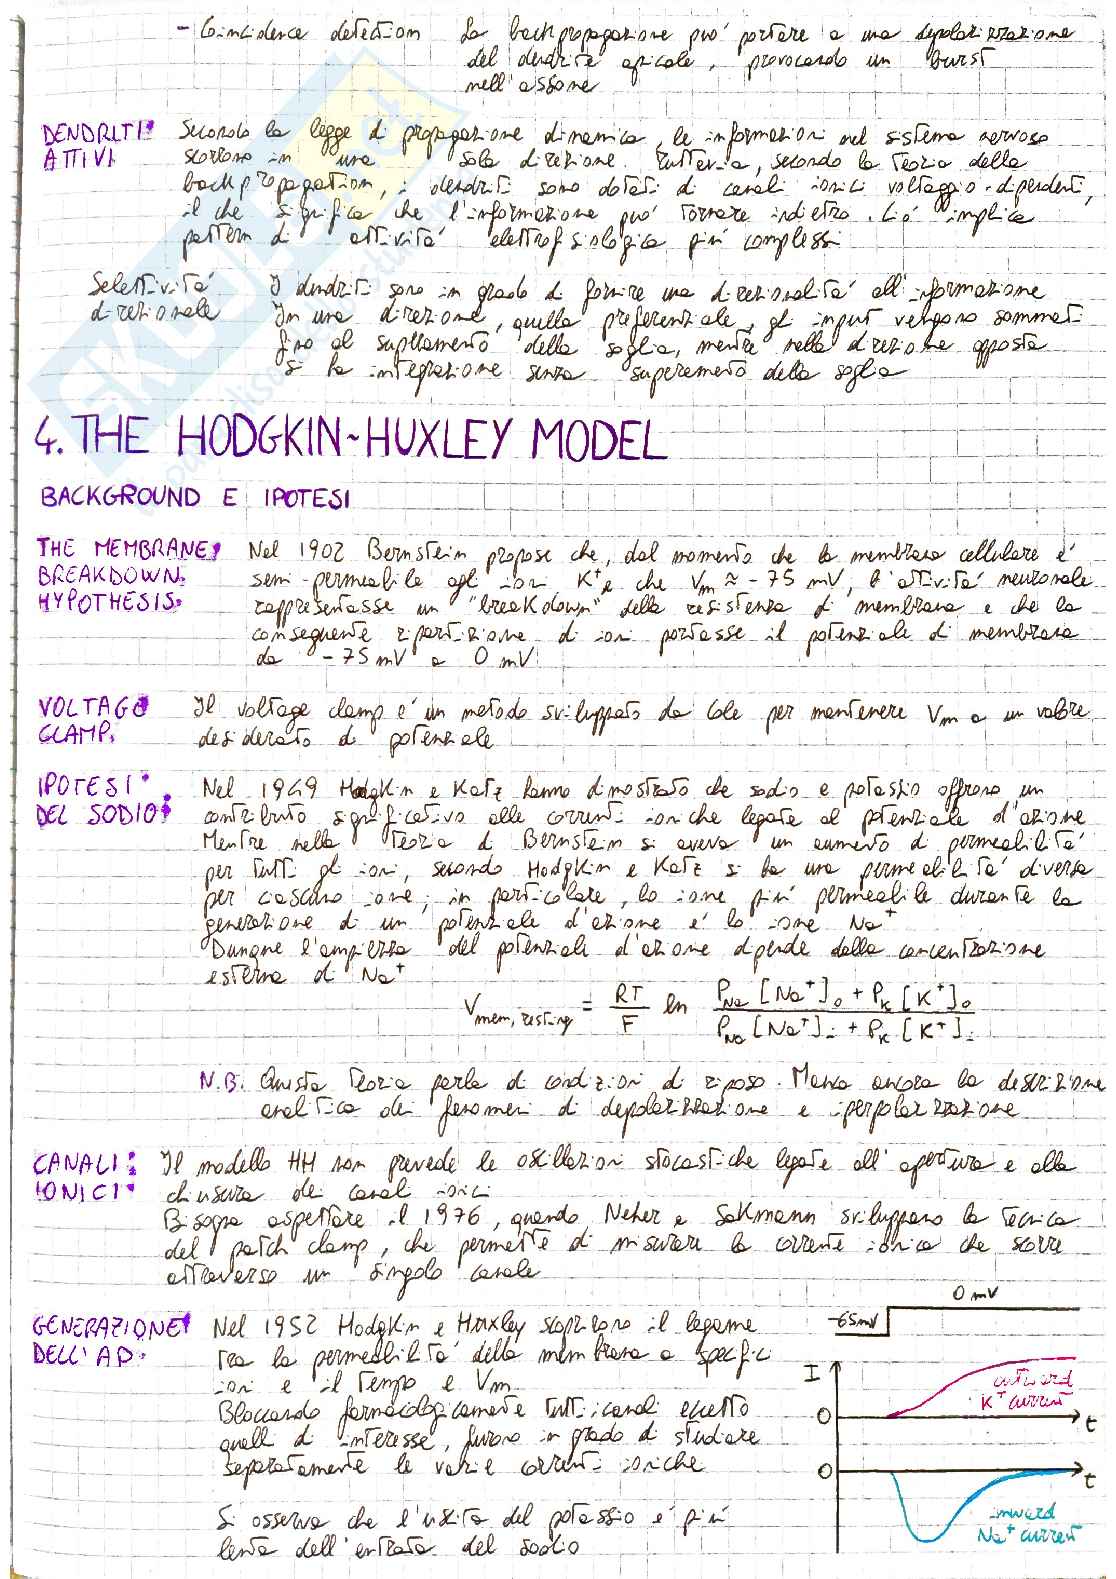 - Coincidence detection La backpropagazione puó portare a una depolarizzazione
del dendrite apicale, provocando un burst
nell'assone
DENDRITI ATTIVI: Secondo la legge di propagazione dinamica, le informazioni nel sistema nervoso
scorrono in una sola direzione. Tuttavia, secondo la teoria della
backpropagation, i dendriti sono dotati di canali ionici voltaggio-dipendenti,
il che significa che l'informazione puó tornare indietro. Ció implica
pattern di attivitá elettrofisiologica piú complessi
Selettivitá direzionale I dendriti sono in grado di fornire una direzionalitá all'informazione
In una direzione, quella preferenziale, gli input vengono sommati
fino al superamento della soglia, mentre nella direzione opposta
si ha integrazione senza superamento della soglia
4. THE HODGKIN-HUXLEY MODEL
BACKGROUND E IPOTESI
THE MEMBRANE BREAKDOWN HYPOTHESIS: Nel 1902 Bernstein propose che, dal momento che la membrana cellulare é
semi-permeabile agli ioni K⁺ e che Vm ≈ -75 mV, l'attivitá neuronale
rappresentasse un "breakdown" della resistenza di membrana e che la
conseguente ripartizione di ioni portasse il potenziale di membrana
da -75 mV a 0 mV
VOLTAGE CLAMP: Il voltage clamp é un metodo sviluppato da Cole per mantenere Vm a un valore
desiderato di potenziale
IPOTESI DEL SODIO: Nel 1949 Hodgkin e Katz hanno dimostrato che sodio e potassio offrono un
contributo significativo alle correnti ioniche legate al potenziale d'azione
Mentre nella teoria di Bernstein si aveva un aumento di permeabilitá
per tutti gli ioni, secondo Hodgkin e Katz si ha una permeabilitá diversa
per ciascuno ione; in particolare, lo ione piú permeabile durante la
generazione di un potenziale d'azione é lo ione Na⁺
Dunque l'ampiezza del potenziale d'azione dipende dalla concentrazione
esterna di Na⁺
Vmem, resting = RT/F ln (PNa [Na⁺]o + PK [K⁺]o) / (PNa [Na⁺]i + PK [K⁺]i)
N.B. Questa teoria parla di condizioni di riposo. Manca ancora la descrizione
analitica dei fenomeni di depolarizzazione e iperpolarizzazione
CANALI IONICI: Il modello HH non prevede le oscillazioni stocastiche legate all'apertura e alla
chiusura dei canali ionici
Bisogna aspettare il 1976, quando Neher e Sakmann sviluppano la tecnica
del patch clamp, che permette di misurare la corrente ionica che scorre
attraverso un singolo canale
GENERAZIONE DELL'AP: Nel 1952 Hodgkin e Huxley scoprirono il legame
tra la permeabilitá della membrana a specifici
ioni e il tempo e Vm
Bloccando farmacologicamente tutti i canali eccetto
quelli di interesse, furono in grado di studiare
separatamente le varie correnti ioniche
Si osserva che l'uscita del potassio é piú
lenta dell'entrata del sodio
0 mV
-65mV
I
outward
K⁺ current
0
t
0
t
inward
Na⁺ current